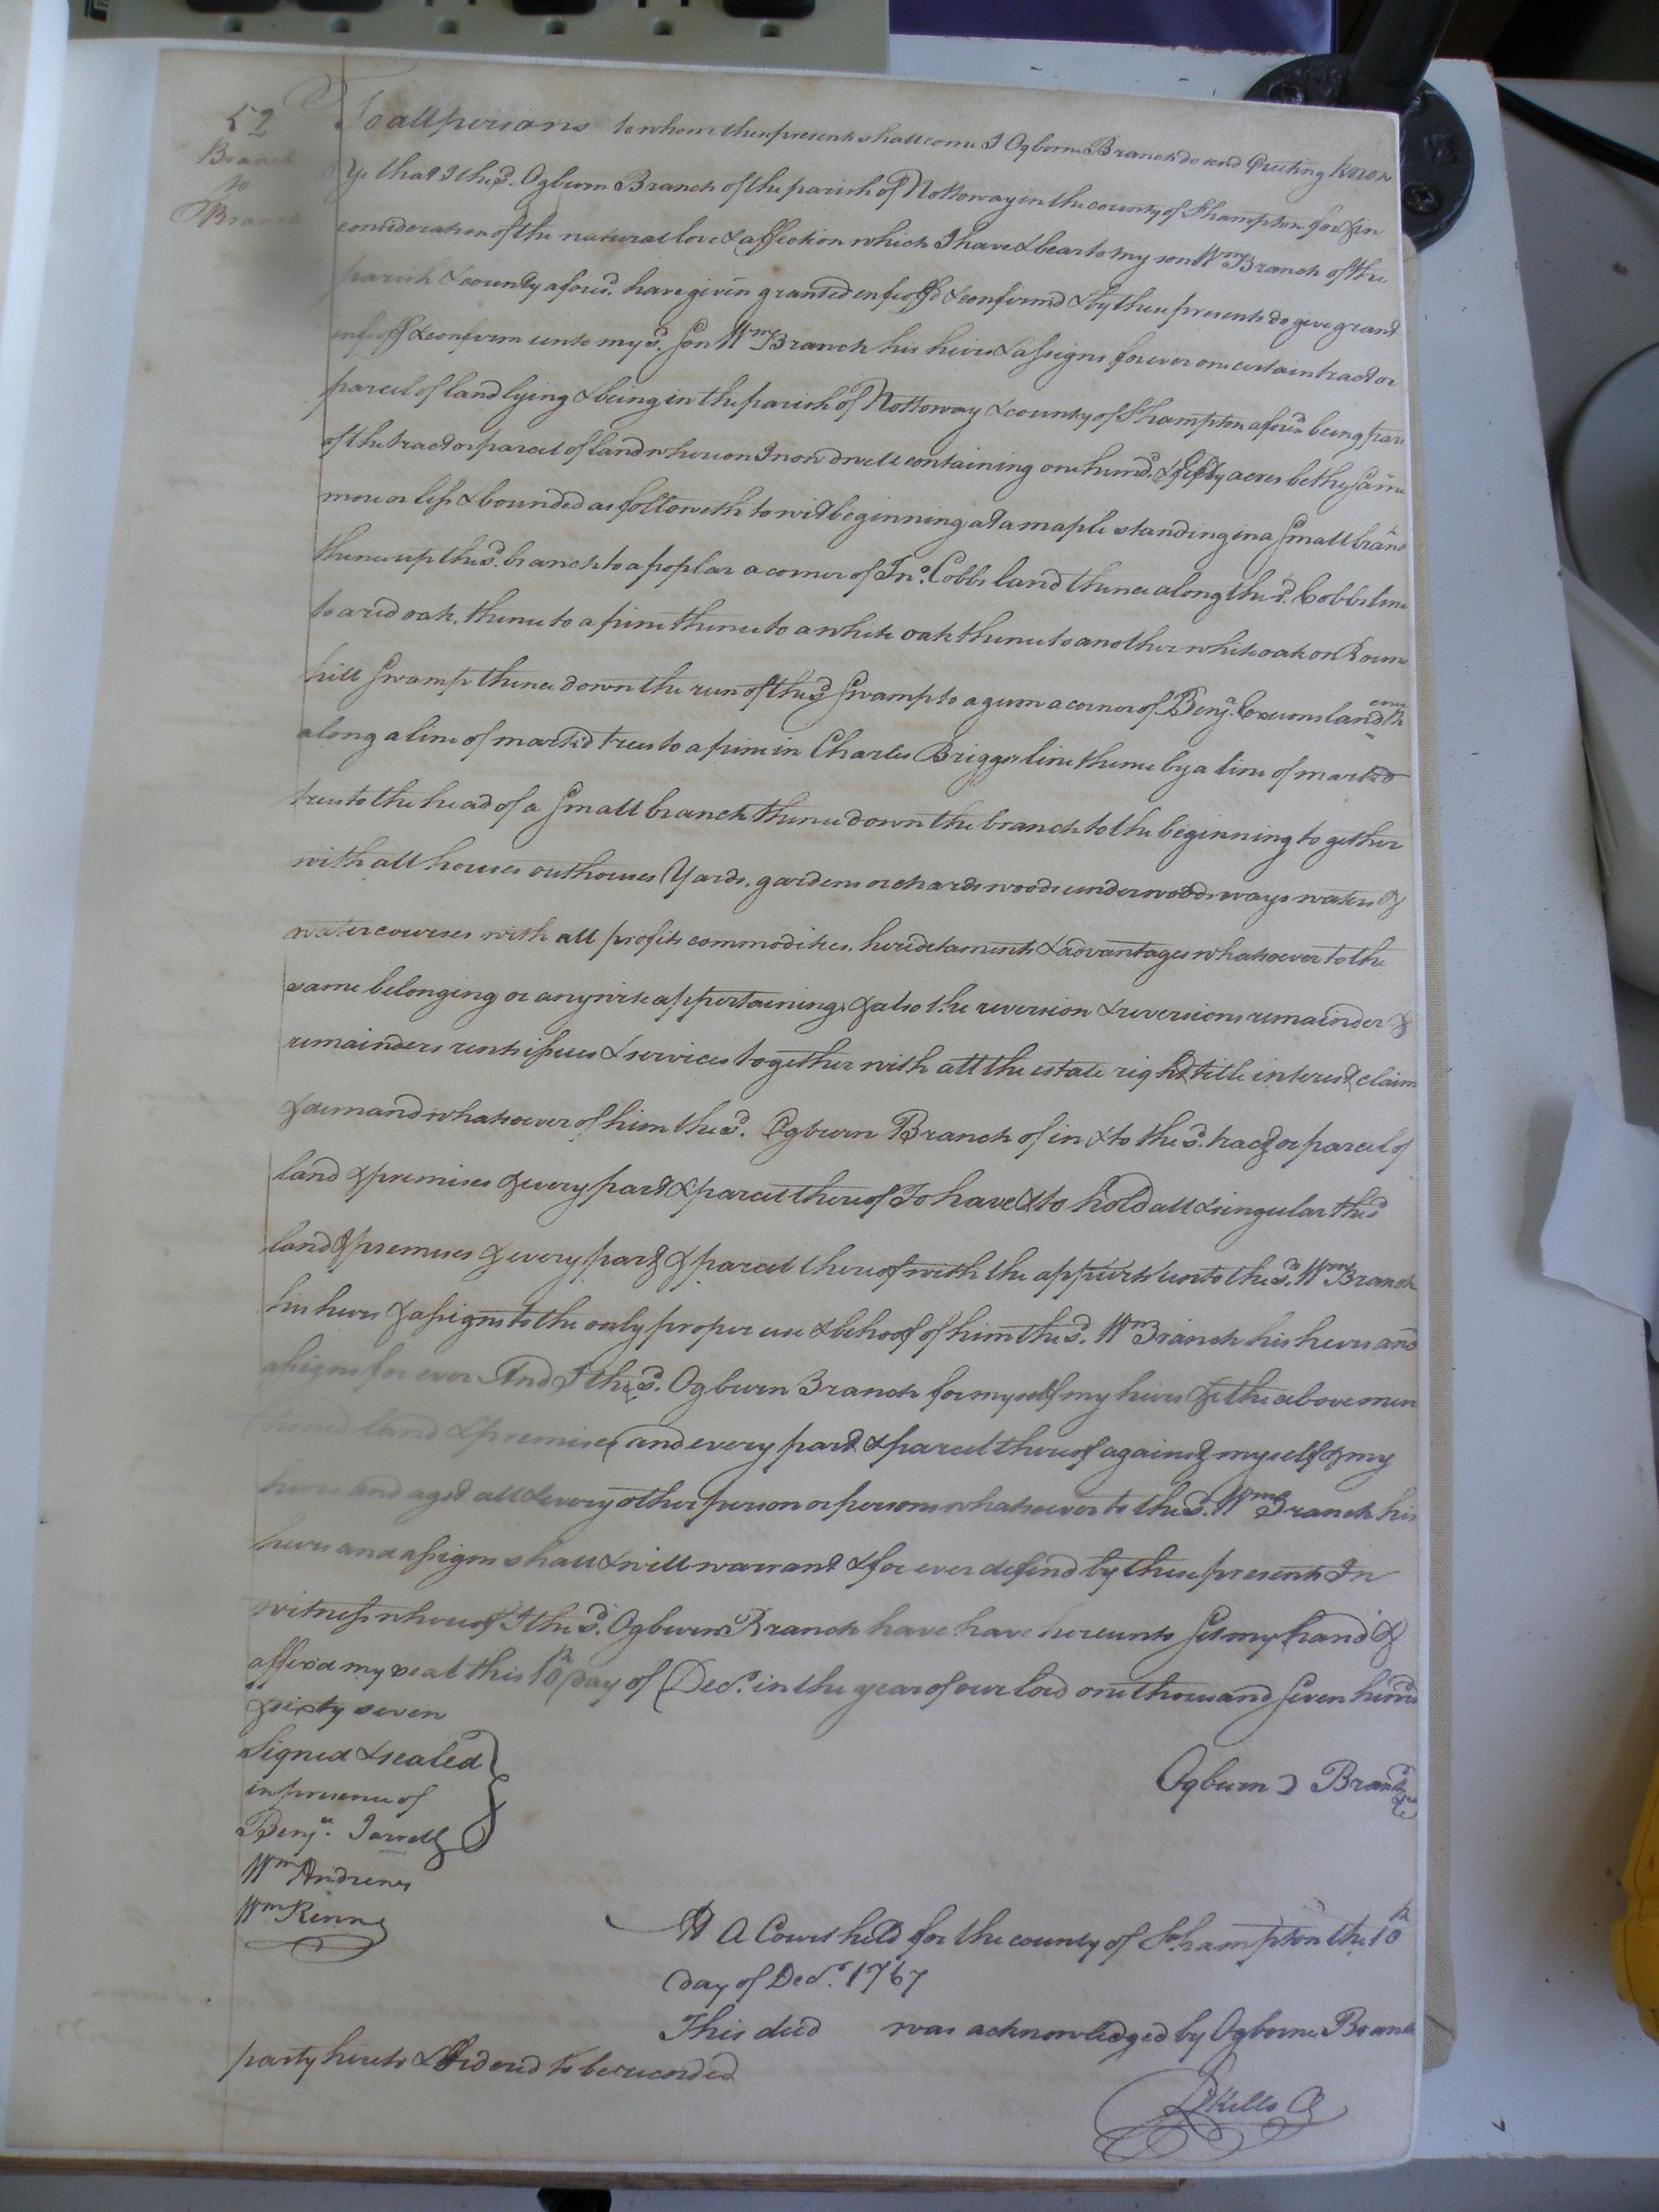 52
Branch
to
Branch
To all persons to whom these presents shall come I Ogborne Branch do send Greeting Know
Ye that I the sd. Ogburn Branch of the parish of Nottoway in the county of Shampton for & in
consideration of the natural love & affection which I have & bear to my son Wm Branch of the
parish & county afores'd. have given granted enfeoff'd & confirm'd & by these presents do give grant
enfeoff & confirm unto my sd. Son Wm Branch his heirs & assigns forever one certain tract or
parcel of land lying & being in the parish of Nottoway & county of Shampton afores'd being part
of the tract or parcel of land whereon I now dwell containing one hund. & fifty acres be the same
more or less & bounded as followeth to wit beginning at a maple standing in a Small branc
thence up the sd. branch to a poplar a corner of Jno. Cobbs land thence along the sd. Cobbs line
to a red oak, thence to a pine thence to a white oak thence to another white oak on Roun
hill Swamp thence down the run of the sd Swamp to a gum a corner of Benja. Exums land thence
along a line of mark'd trees to a pine in Charles Briggs's line thence by a line of mark'd
trees to the head of a Small branch thence down the branch to the beginning together
with all houses outhouses Yards, gardens orchards woods underwoods ways waters &
watercourses with all profits commodities, heridetaments & advantages whatsoever to the
same belonging or anywise appertaining, & also the reversion & reversions remainder &
remainders rents issues & services together with all the estate right title interest claim
& demand whatsoever of him the sd. Ogburn Branch of in & to the sd. tract or parcel of
land & premises & every part & parcel thereof To have & to hold all & singular the sd
land & premises & every part & parcel thereof with the appurts unto the sd. Wm Branch
his heirs & assigns to the only proper use & behoof of him the sd. Wm Branch his heirs and
assigns for ever And I the sd. Ogburn Branch for myself my heirs &c the above men
tioned land & premises and every part & parcel thereof against myself & my
heirs and agst all & every other person or persons whatsoever to the sd. Wm Branch his
heirs and assigns shall & will warrant & for ever defend by these presents In
witness whereof I the sd. Ogburn Branch have have hereunto Set my hand &
affix'd my seal this 10th day of Decr. in the year of our lord one thousand Seven hund
& sixty seven
Signed & sealed
in presence of
Benja. Jarrell
Wm Andrews
Wm Renn
Ogburn Branch
At A Court held for the county of Shampton the 10th
day of Decr. 1767
This deed was acknowledged by Ogborne Branch
party hereto & Ordered to be recorded